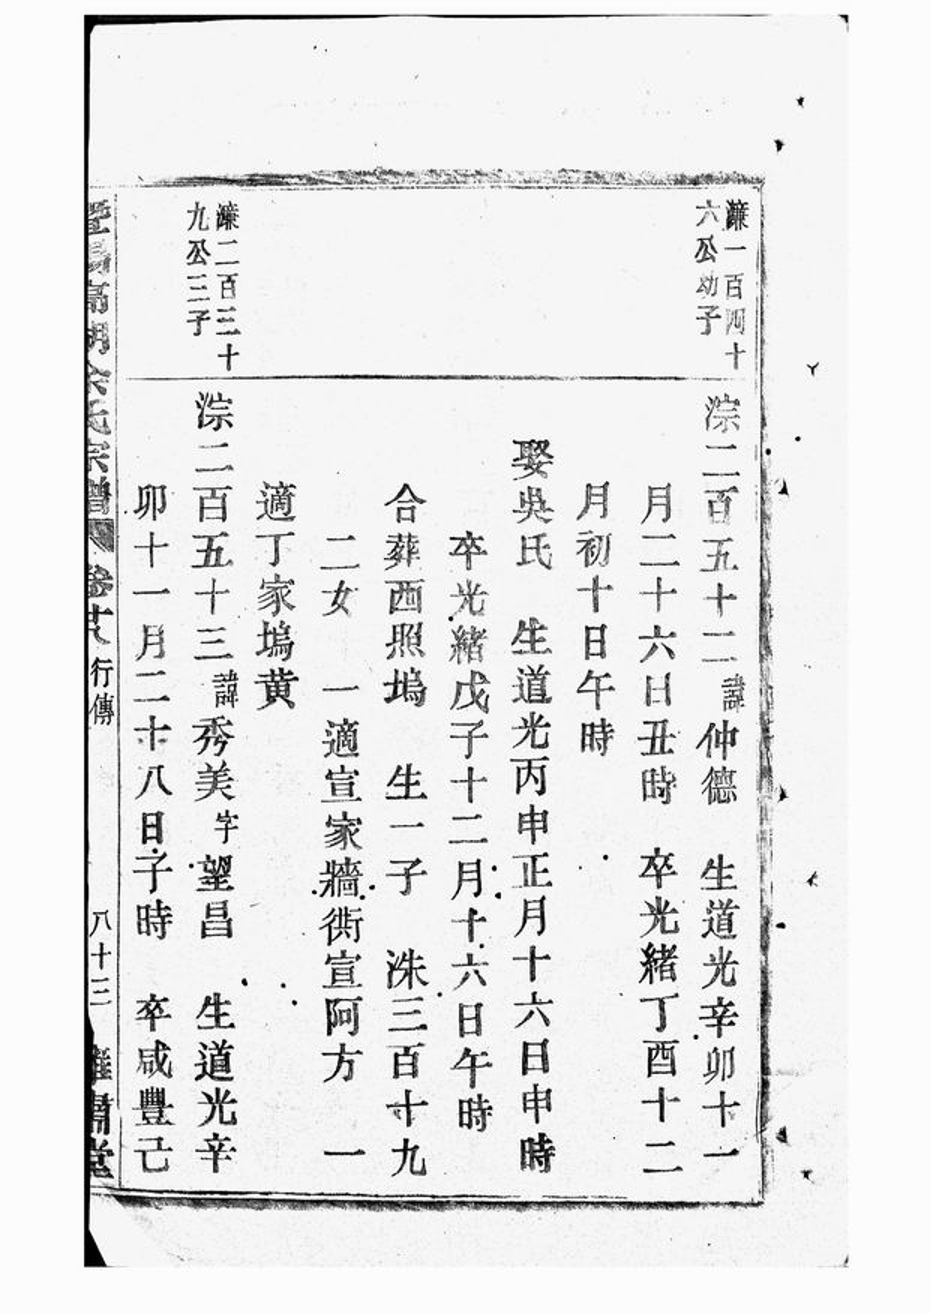 濂一百四十
六公幼子
淙二百五十二諱仲德　生道光辛卯十一
月二十六日丑時　卒光緒丁酉十二
月初十日午時
娶吳氏　生道光丙申正月十六日申時
卒光緒戊子十二月十六日午時
合葬西照塢　生一子　洙三百十九
二女　一適宣家牆衖宣阿方　一
適丁家塢黄
濂二百三十
九公三子
淙二百五十三諱秀美字望昌　生道光辛
卯十一月二十八日子時　卒咸豐己
暨陽高湖余氏宗譜　卷十八　行傳　八十三　肅堂